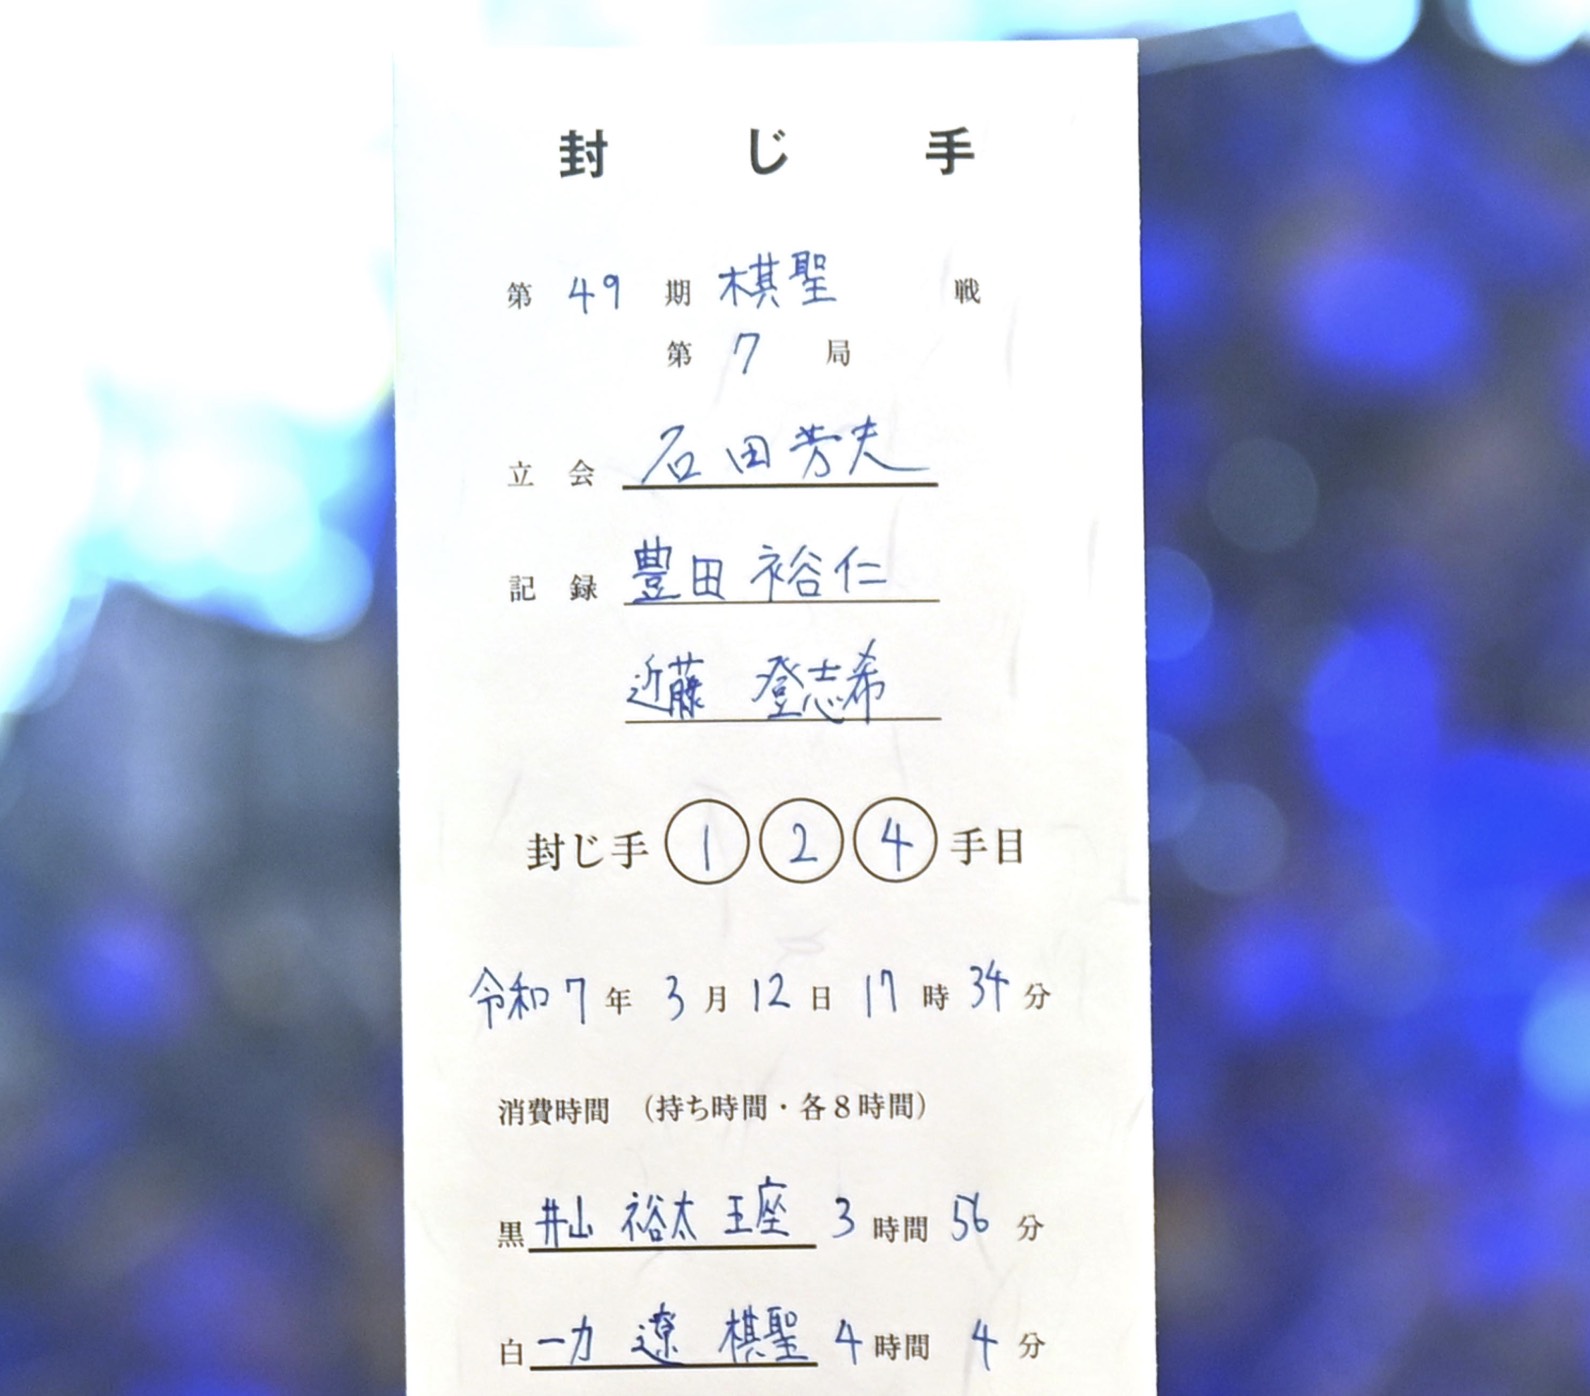 封じ手
第 49 期 棋聖 戦
第 7 局
立会 石田芳夫
記録 豊田裕仁
近藤 登志希
封じ手 1 2 4 手目
令和7年 3月 12日 17時 34分
消費時間 （持ち時間・各8時間）
黒 井山 裕太 王座 3時間 56分
白 一力 遼 棋聖 4時間 4分